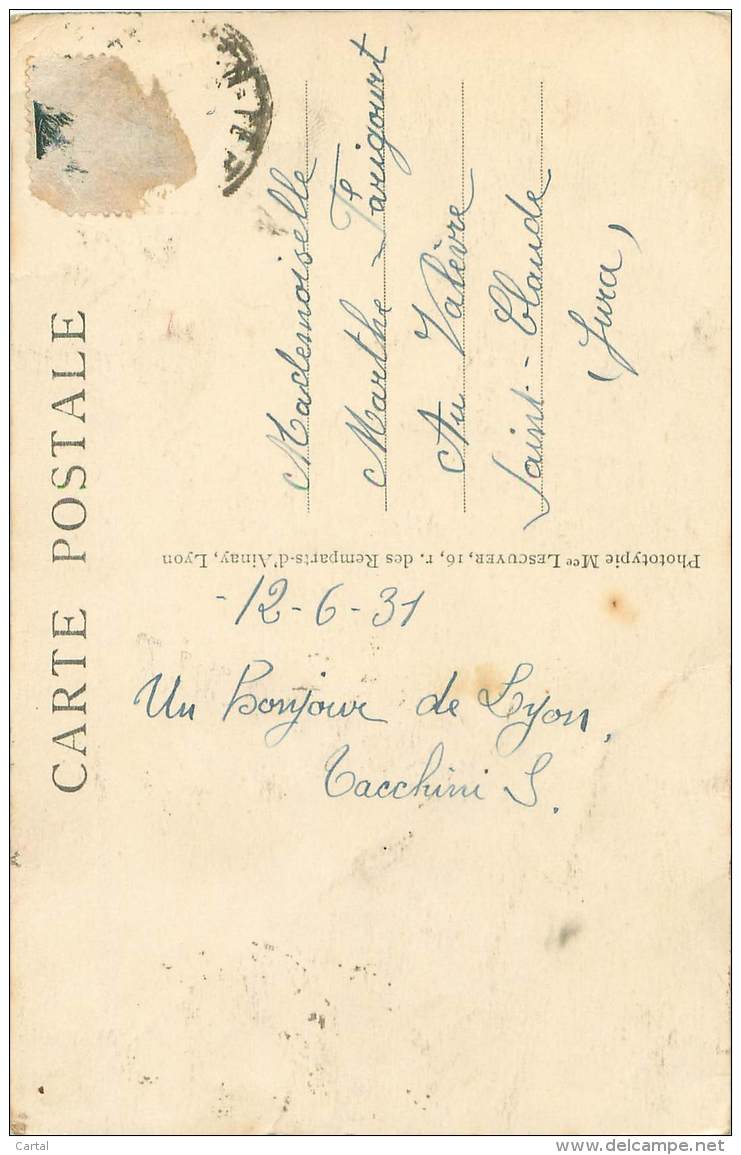 CARTE POSTALE
Mademoiselle
Marthe Tarigourt
Au Valèvre
Saint-Claude
(Jura)
Phototypie Mce LESCUYER, 16, r. des Remparts-d'Ainay, Lyon
-12-6-31
Un bonjour de Lyon.
Tacchini S.
Cartal
www.delcampe.net